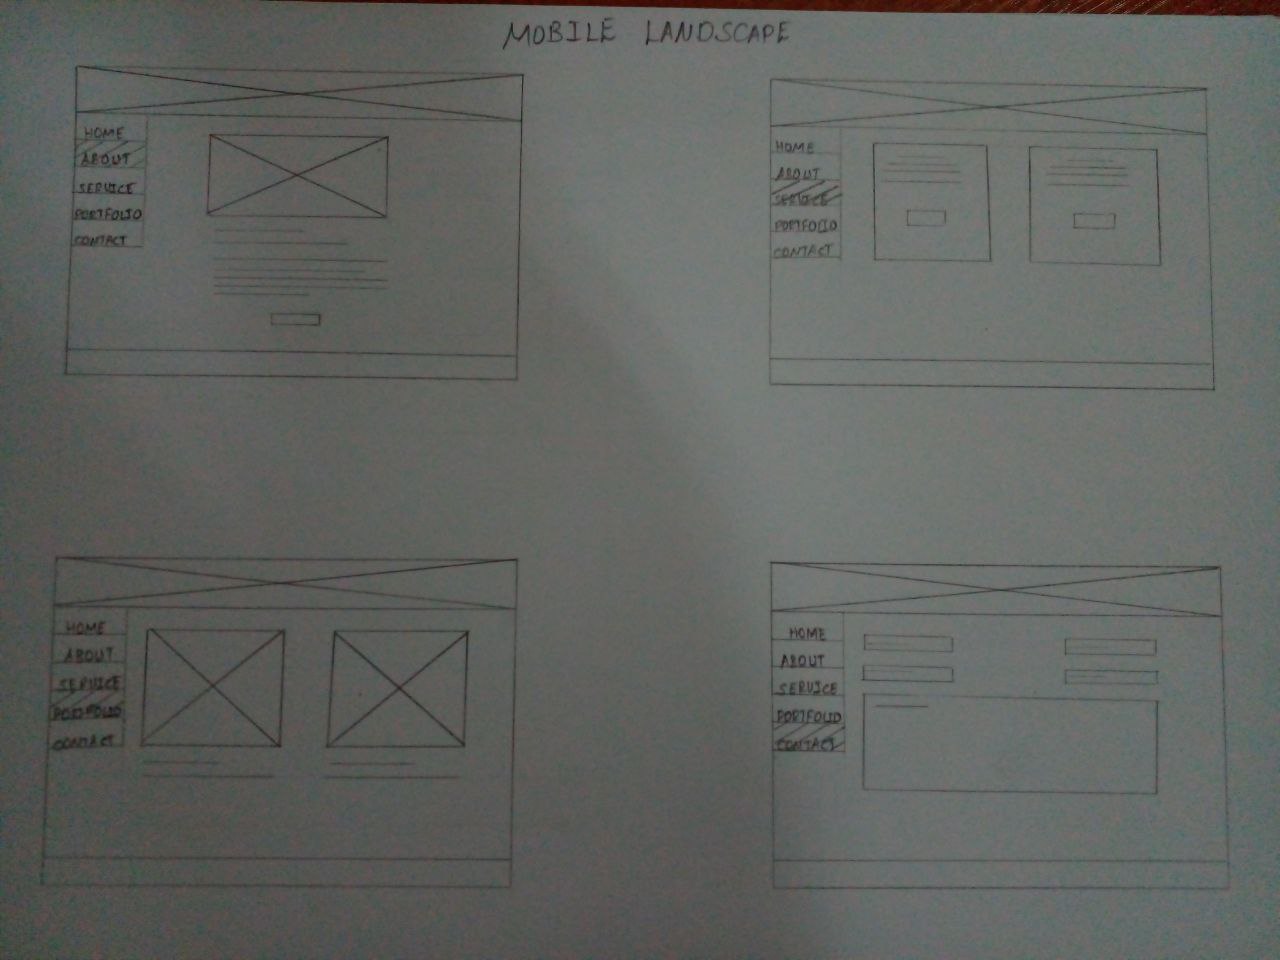 MOBILE LANDSCAPE
HOME
ABOUT
SERVICE
PORTFOLIO
CONTACT
HOME
ABOUT
SERVICE
PORTFOLIO
CONTACT
HOME
ABOUT
SERVICE
PORTFOLIO
CONTACT
HOME
ABOUT
SERVICE
PORTFOLIO
CONTACT